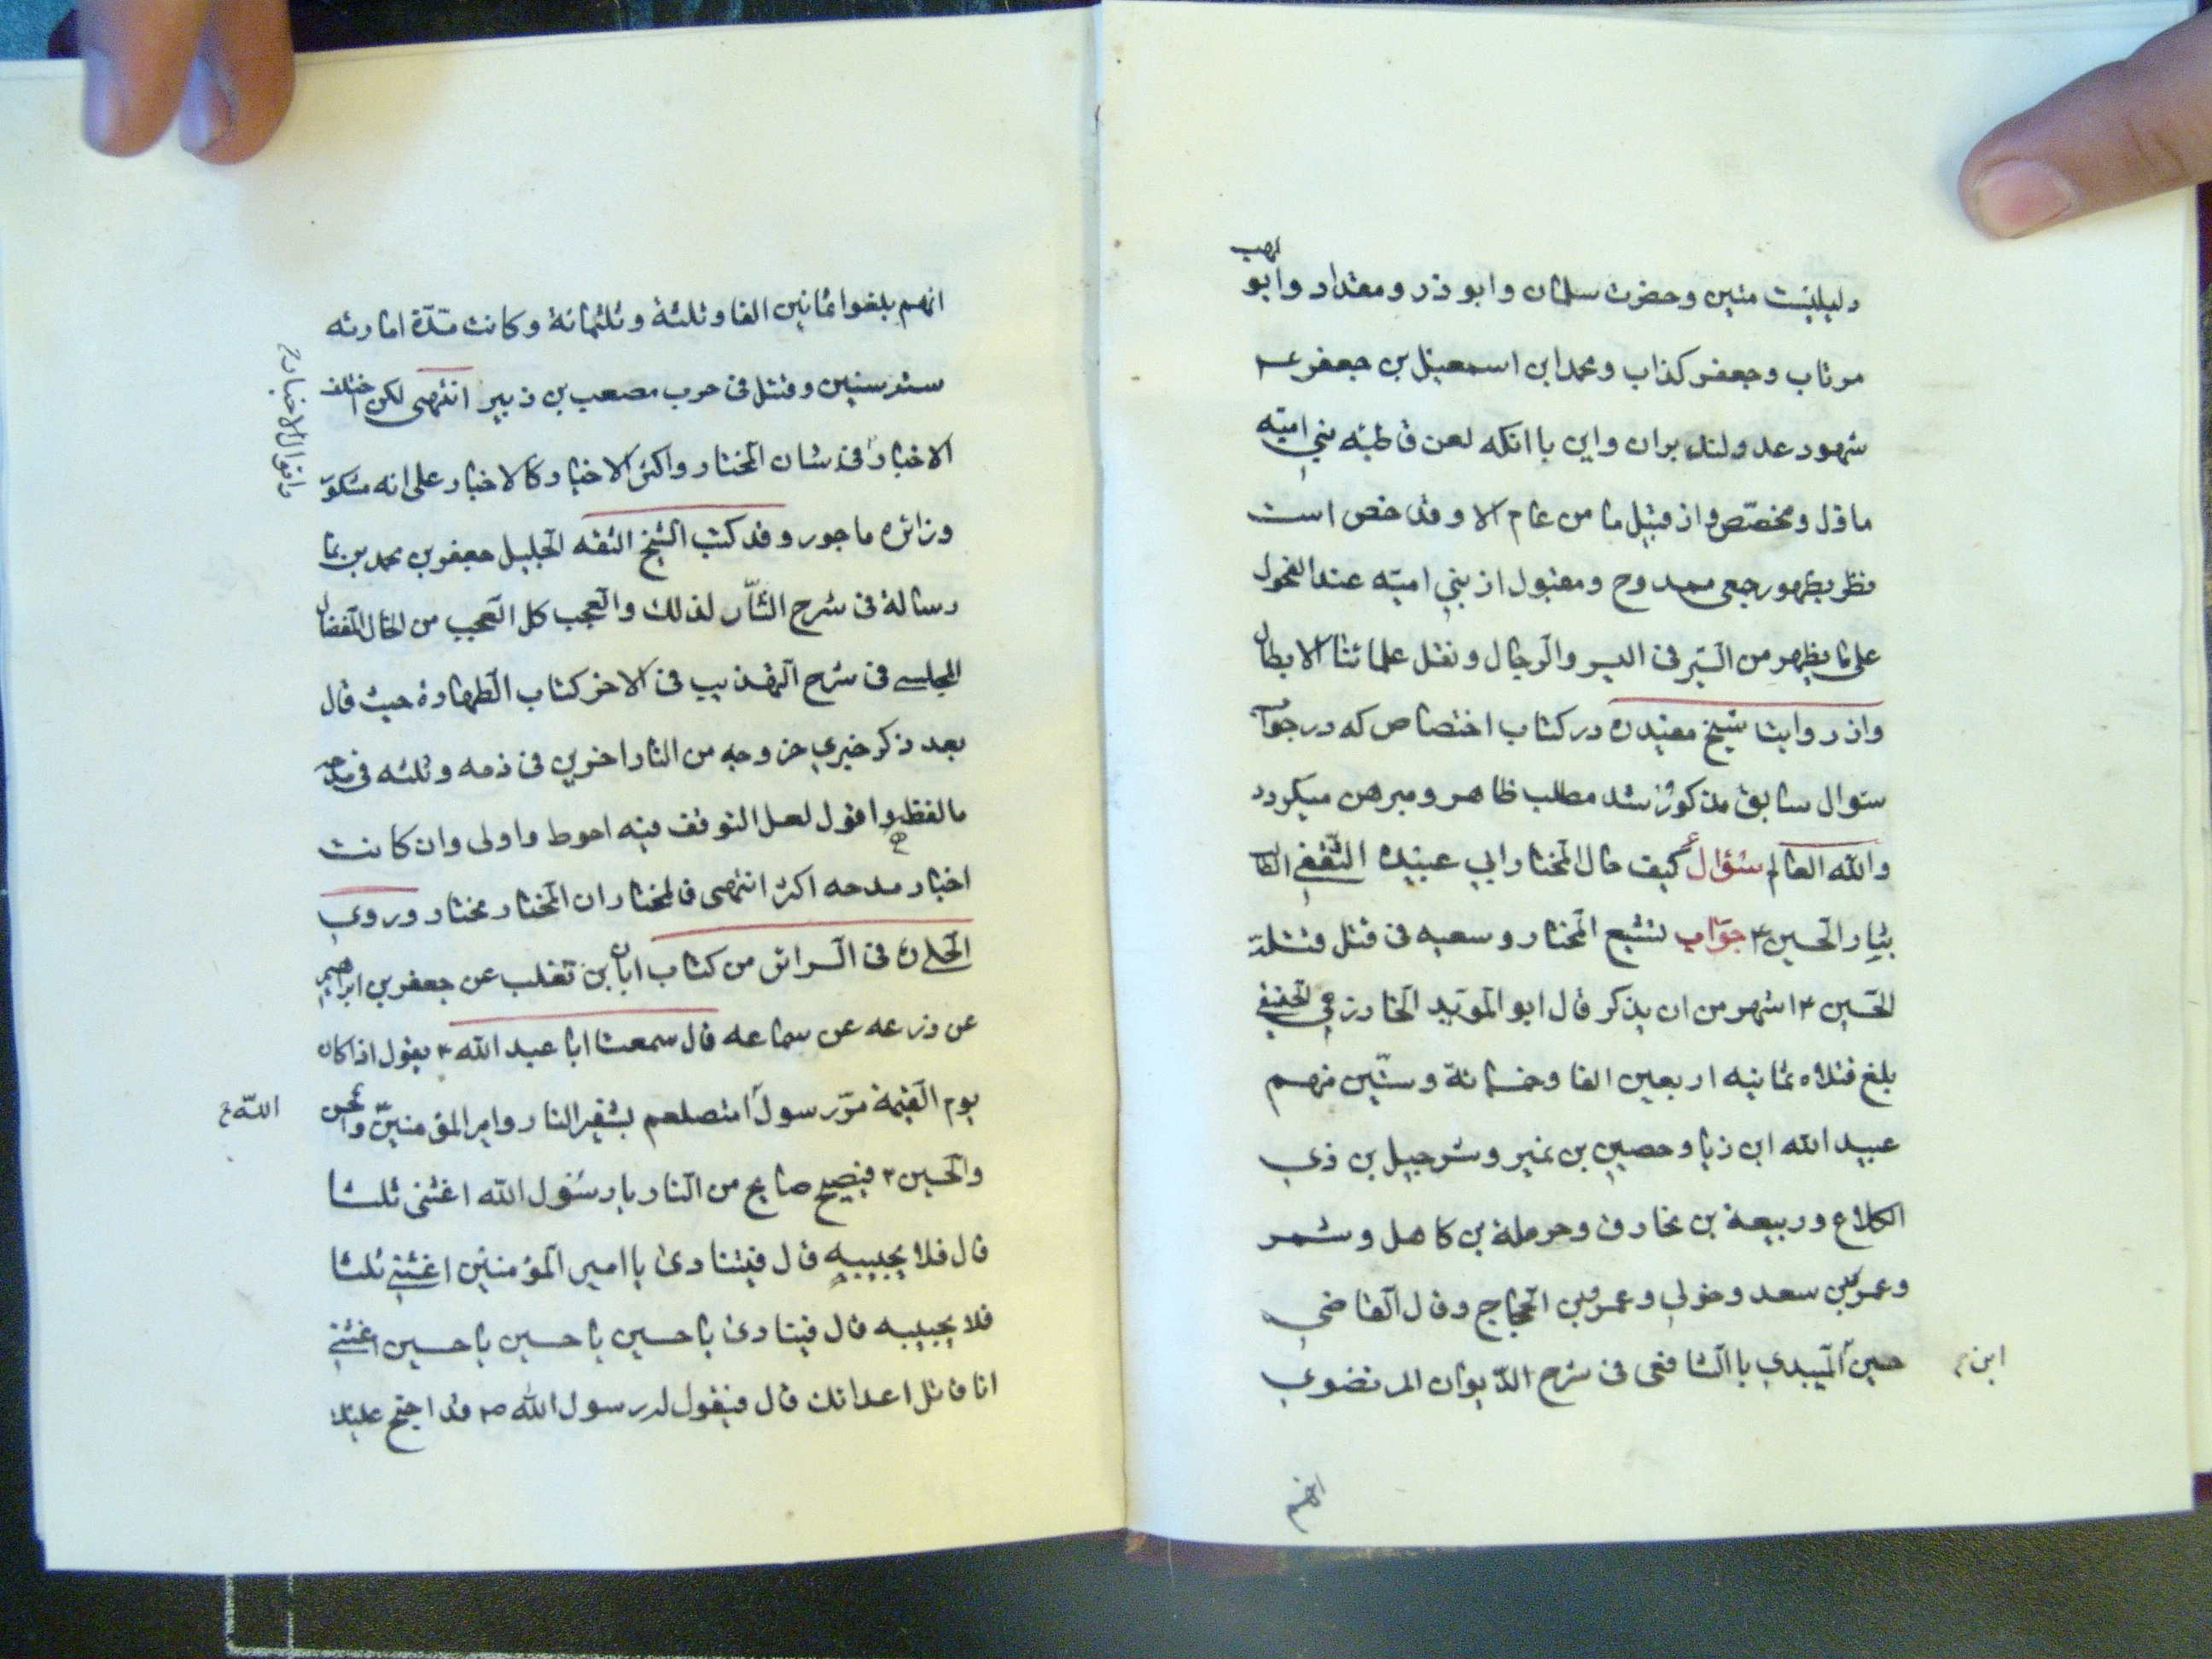 دلیلیست متین وحضرت سلمان وابوذر ومقداد وابو لهب
مرتاب وجعفر کذاب ومحمد ابن اسمعیل بن جعفر عم
شهود عدولند بران واین با انکه لعن قاطبه بنی امیه
ماول ومخصص واز قبیل ما من عام الا وقد خص است
نظر بظهور جعی ممدوح ومقبول از بنی امیه عند الفحول
علی ما یظهر من السیر فی السیر والرجال ونقل علمائنا الابطال
واز روایت شیخ مفیده در کتاب اختصاص که در جواب
سئوال سابق مذکور شد مطلب ظاهر ومبرهن میگردد
والله العالم سئوال کیف حال المختار ابی عبیده الثقفی الطالب
بثار الحسین ع جواب تشیع المختار وسعیه فی قتل قتلة
الحسین ع اشهر من ان یذکر قال ابو الموید الخوارزمی الحنفی
بلغ قتلاه ثمانیه اربعین الفا وخمسمائة وستین منهم
عبید الله ابن زیاد وحصین بن نمیر وشرحبیل بن ذی
الکلاع وربیعة بن مخارق وحرملة بن کاهل وشمر
وعمر بن سعد وخولی وعمرو بن الحجاج وقال القاضی
حسین المیبدی یا الشافعی فی شرح الدیوان المرتضوی
ابن
انهم
انهم بلغوا ثمانین الفا وثلثة وثلثمائة وکانت مدة امارته
سته سنین وقتل فی حرب مصعب بن زبیر انتهی لکن اختلف
الاخبار فی شان المختار واکثر الاخبار کالاخبار علی انه مشکور
وزائره ماجور وقد کتب الشیخ الثقه الجلیل جعفر بن محمد بن نما
رسالة فی شرح الثار لذلك والعجب کل العجب من الخال المفضال
المجلسی فی شرح التهذیب فی الاخر کتاب الطهارة حیث قال
بعد ذکر خبری خروجه من النار اخرین فی ذمه وثلثه فی مدحه
ما لفظه واقول لعل التوقف فیه احوط واولی وان کانت
اخبار مدحه اکثر انتهی فالمختار ان المختار مختار وروی
الحلی ره فی السرائر من کتاب ابان بن تغلب عن جعفر بن ابراهیم
عن زرعه عن سماعه قال سمعت ابا عبد الله ع یقول اذا کان
یوم القیمة مر رسول صلعم بشفیر النار وامیر المؤمنین والحسن
الله
والحسین ع فیصیح صایح من النار یا رسول الله اغثنی ثلثا
قال فلا یجیبه قال فینادی یا امیر المؤمنین اغثنی ثلثا
فلا یجیبه قال فینادی یا حسین یا حسین یا حسین اغثنی
انا قاتل اعدائك قال فیقول له رسول الله ص قد احتج علیك